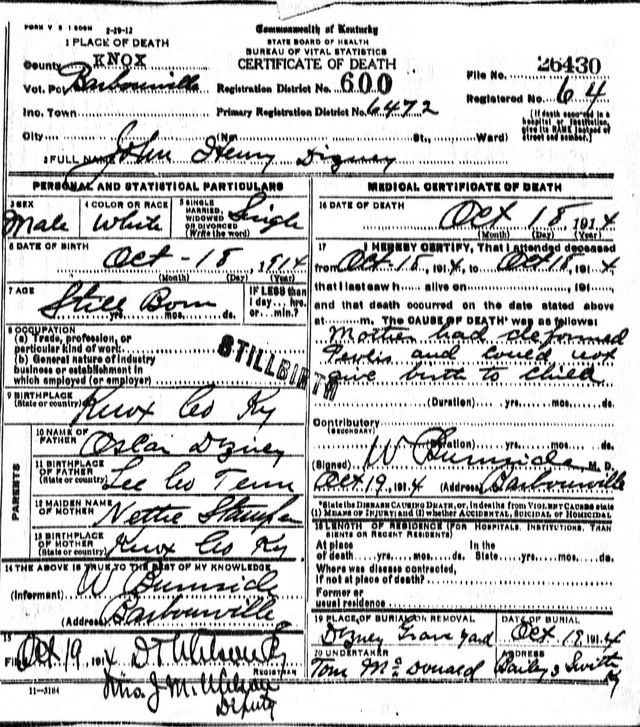 FORM V S 1 2-29-12
1 PLACE OF DEATH
County KNOX
Vot. Pct Barbourville
Inc. Town
City (No. St., Ward)
Commonwealth of Kentucky
STATE BOARD OF HEALTH
BUREAU OF VITAL STATISTICS
CERTIFICATE OF DEATH
Registration District No. 600
Primary Registration District No. 6472
File No. 26430
Registered No. 64
[If death occurred in a
hospital or institution,
give its NAME instead of
street and number.]
2 FULL NAME John Henry Dizney
PERSONAL AND STATISTICAL PARTICULARS
3 SEX
Male
4 COLOR OR RACE
White
5 SINGLE
MARRIED,
WIDOWED
OR DIVORCED
(Write the word)
Single
6 DATE OF BIRTH
Oct - 18, 1914
(Month) (Day) (Year)
7 AGE
Still Born
yrs. mos. ds.
IF LESS than
1 day... hrs.
or... min.?
8 OCCUPATION
(a) Trade, profession, or
particular kind of work
(b) General nature of industry
business or establishment in
which employed (or employer)
STILLBIRTH
9 BIRTHPLACE
(State or country) Knox Co Ky
PARENTS
10 NAME OF
FATHER Oscar Dizney
11 BIRTHPLACE
OF FATHER
(State or country) Lee Co Tenn
12 MAIDEN NAME
OF MOTHER Nettie
13 BIRTHPLACE
OF MOTHER
(State or country) Knox Co Ky
14 THE ABOVE IS TRUE TO THE BEST OF MY KNOWLEDGE
(Informant) W Burnside
(Address) Barbourville
15
Filed Oct 19, 1914
REGISTRAR
J M Wilson
Deputy
11-3184
MEDICAL CERTIFICATE OF DEATH
16 DATE OF DEATH
Oct 18, 1914
(Month) (Day) (Year)
17 I HEREBY CERTIFY, That I attended deceased
from Oct-18, 1914, to Oct 18, 1914
that I last saw h alive on , 191
and that death occurred on the date stated above
at m. The CAUSE OF DEATH* was as follows:
Mother had deformed
Pevlis and could not
give birth to child
(Duration) yrs. mos. ds.
Contributory
(SECONDARY)
(Duration) yrs. mos. ds.
(Signed) W Burnside M. D.
Oct 19, 1914 (Address) Barbourville
*State the DISEASE CAUSING DEATH, or, in deaths from VIOLENT CAUSES state
(1) MEANS OF INJURY; and (2) whether ACCIDENTAL, SUICIDAL or HOMICIDAL
18 LENGTH OF RESIDENCE (FOR HOSPITALS, INSTITUTIONS, TRAN
SIENTS OR RECENT RESIDENTS)
At place In the
of death yrs. mos. ds. State yrs. mos. ds.
Where was disease contracted,
if not at place of death?
Former or
usual residence
19 PLACE OF BURIAL OR REMOVAL
Dizney Grave yard
DATE OF BURIAL
Oct 19 1914
20 UNDERTAKER
Tom McDonald
ADDRESS
Baileys Switch
Ky